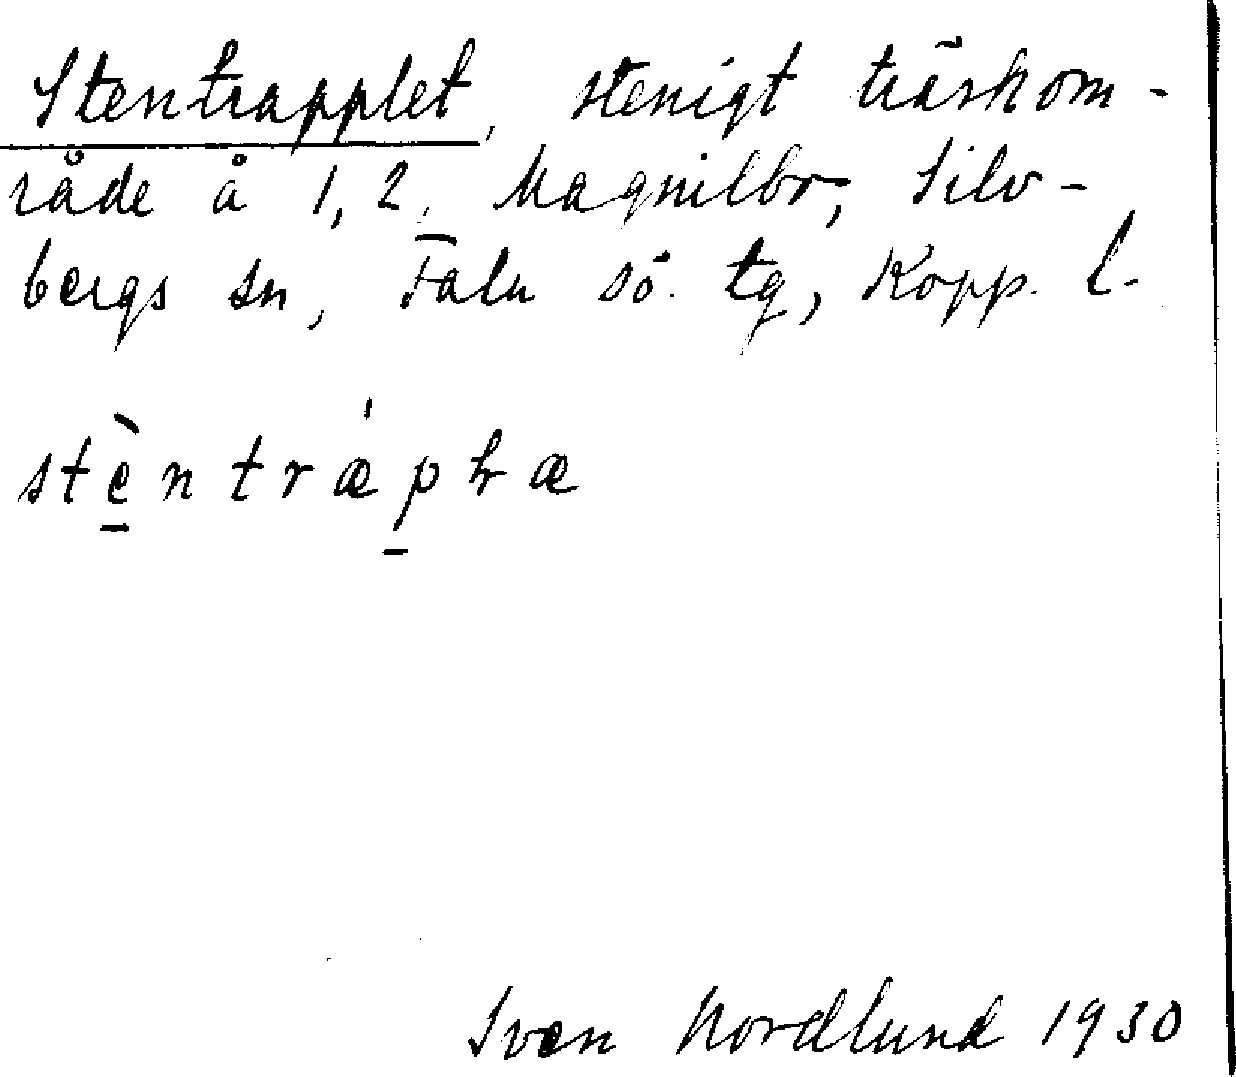 Stentrapplet, stenigt träskom-
råde å 1, 2, Magnilbo, Silv-
bergs sn, Falu sö. tg, Kopp. l.
stèntræpƚæ
Sven Nordlund 1930